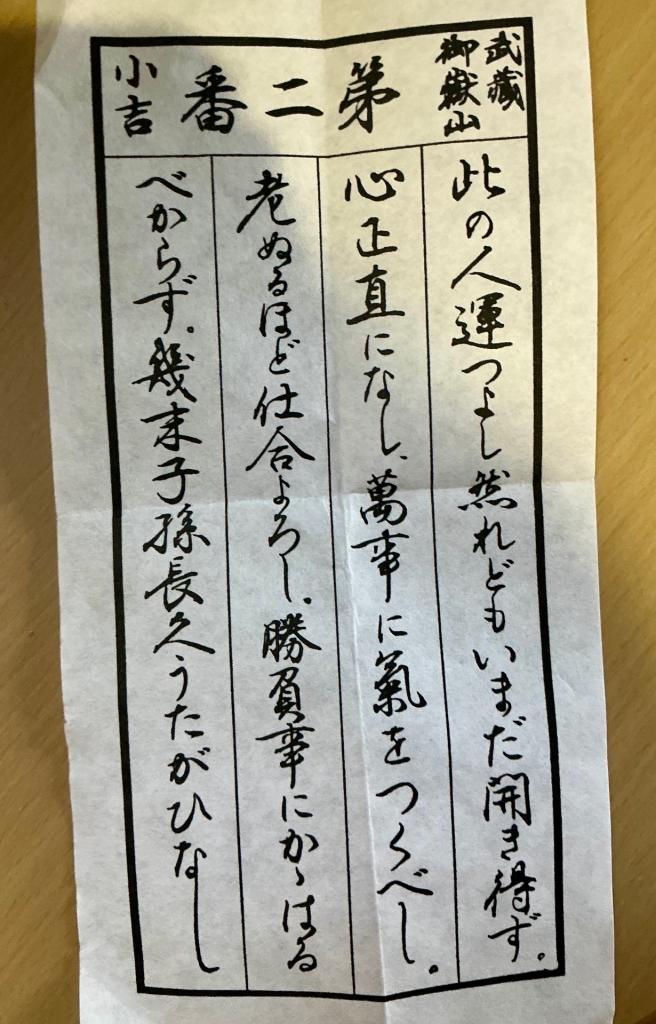 武蔵
御嶽山
第二番
小吉
此の人運つよし然れどもいまだ開き得ず。
心正直になし、萬事に氣をつくべし。
老ぬるほど仕合よろし、勝負事にかゝはる
べからず。幾末子孫長久うたがひなし